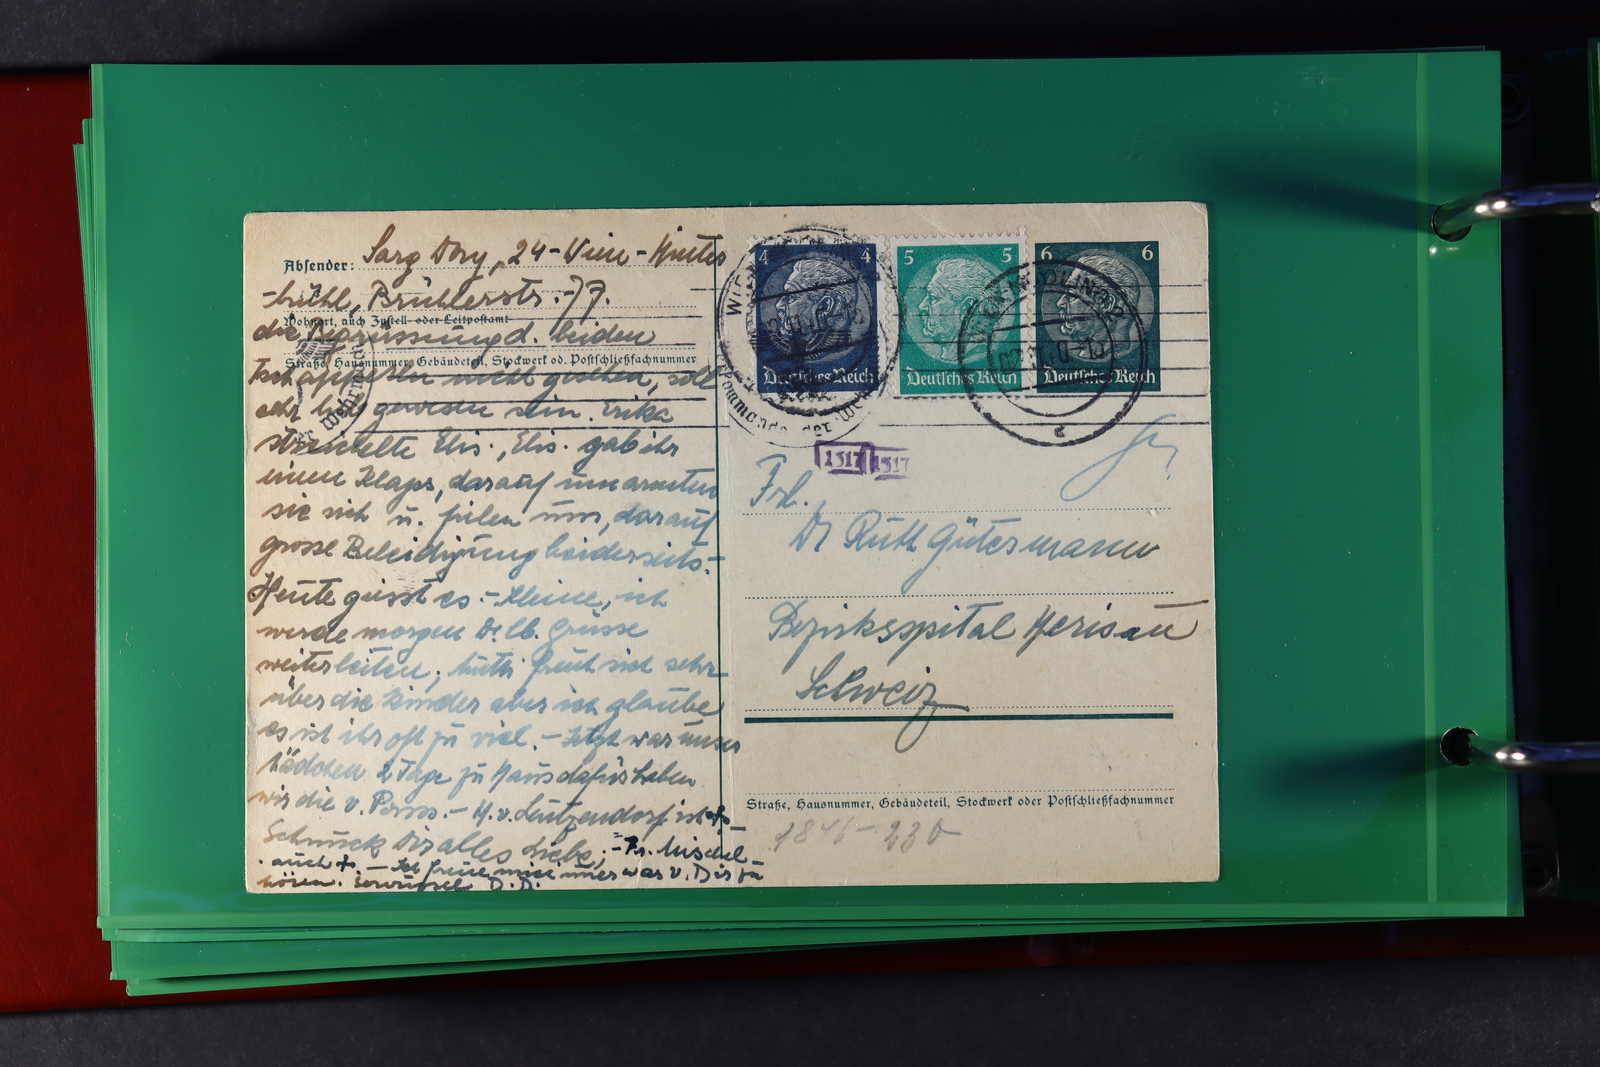 Absender: Sarg Dory, 24 - Wien - Hinter
-brühl, Brühlerstr. - 77.
Wohnort, auch Zustell- oder Leitpostamt
die Begrüssung d. beiden
Straße, Hausnummer, Gebäudeteil, Stockwerk od. Postschließfachnummer
nicht gesehen, soll
sehr gewesen sein. Erika
Elis., Elis. gab ihr
einen Klaps, darauf umarmten
sie sich u. fielen um, darauf
grosse Beleidigung beiderseits.-
Heute geisst es.- Kleine, ich
werde morgen D. lb. Grüsse
weiterleiten, Mutti freut sich sehr
über die Kinder aber ich glaube
es ist ihr oft zu viel. - Jetzt war unser
Mädchen 2 Tage zu Haus dafür haben
wir die v. - H. v. Leutzendorf ist
Schmuck Dir alles Liebe, - Fr.
auch - Ich freue mich immer was v. Dir zu
hören. D. D.
4 4
Deutsches Reich
5 5
Deutsches Reich
6 6
Deutsches Reich
WIEN
1517 1517
Frl.
Dr Ruth Gütermann
Bezirksspital Herisau
Schweiz
Straße, Hausnummer, Gebäudeteil, Stockwerk oder Postschließfachnummer